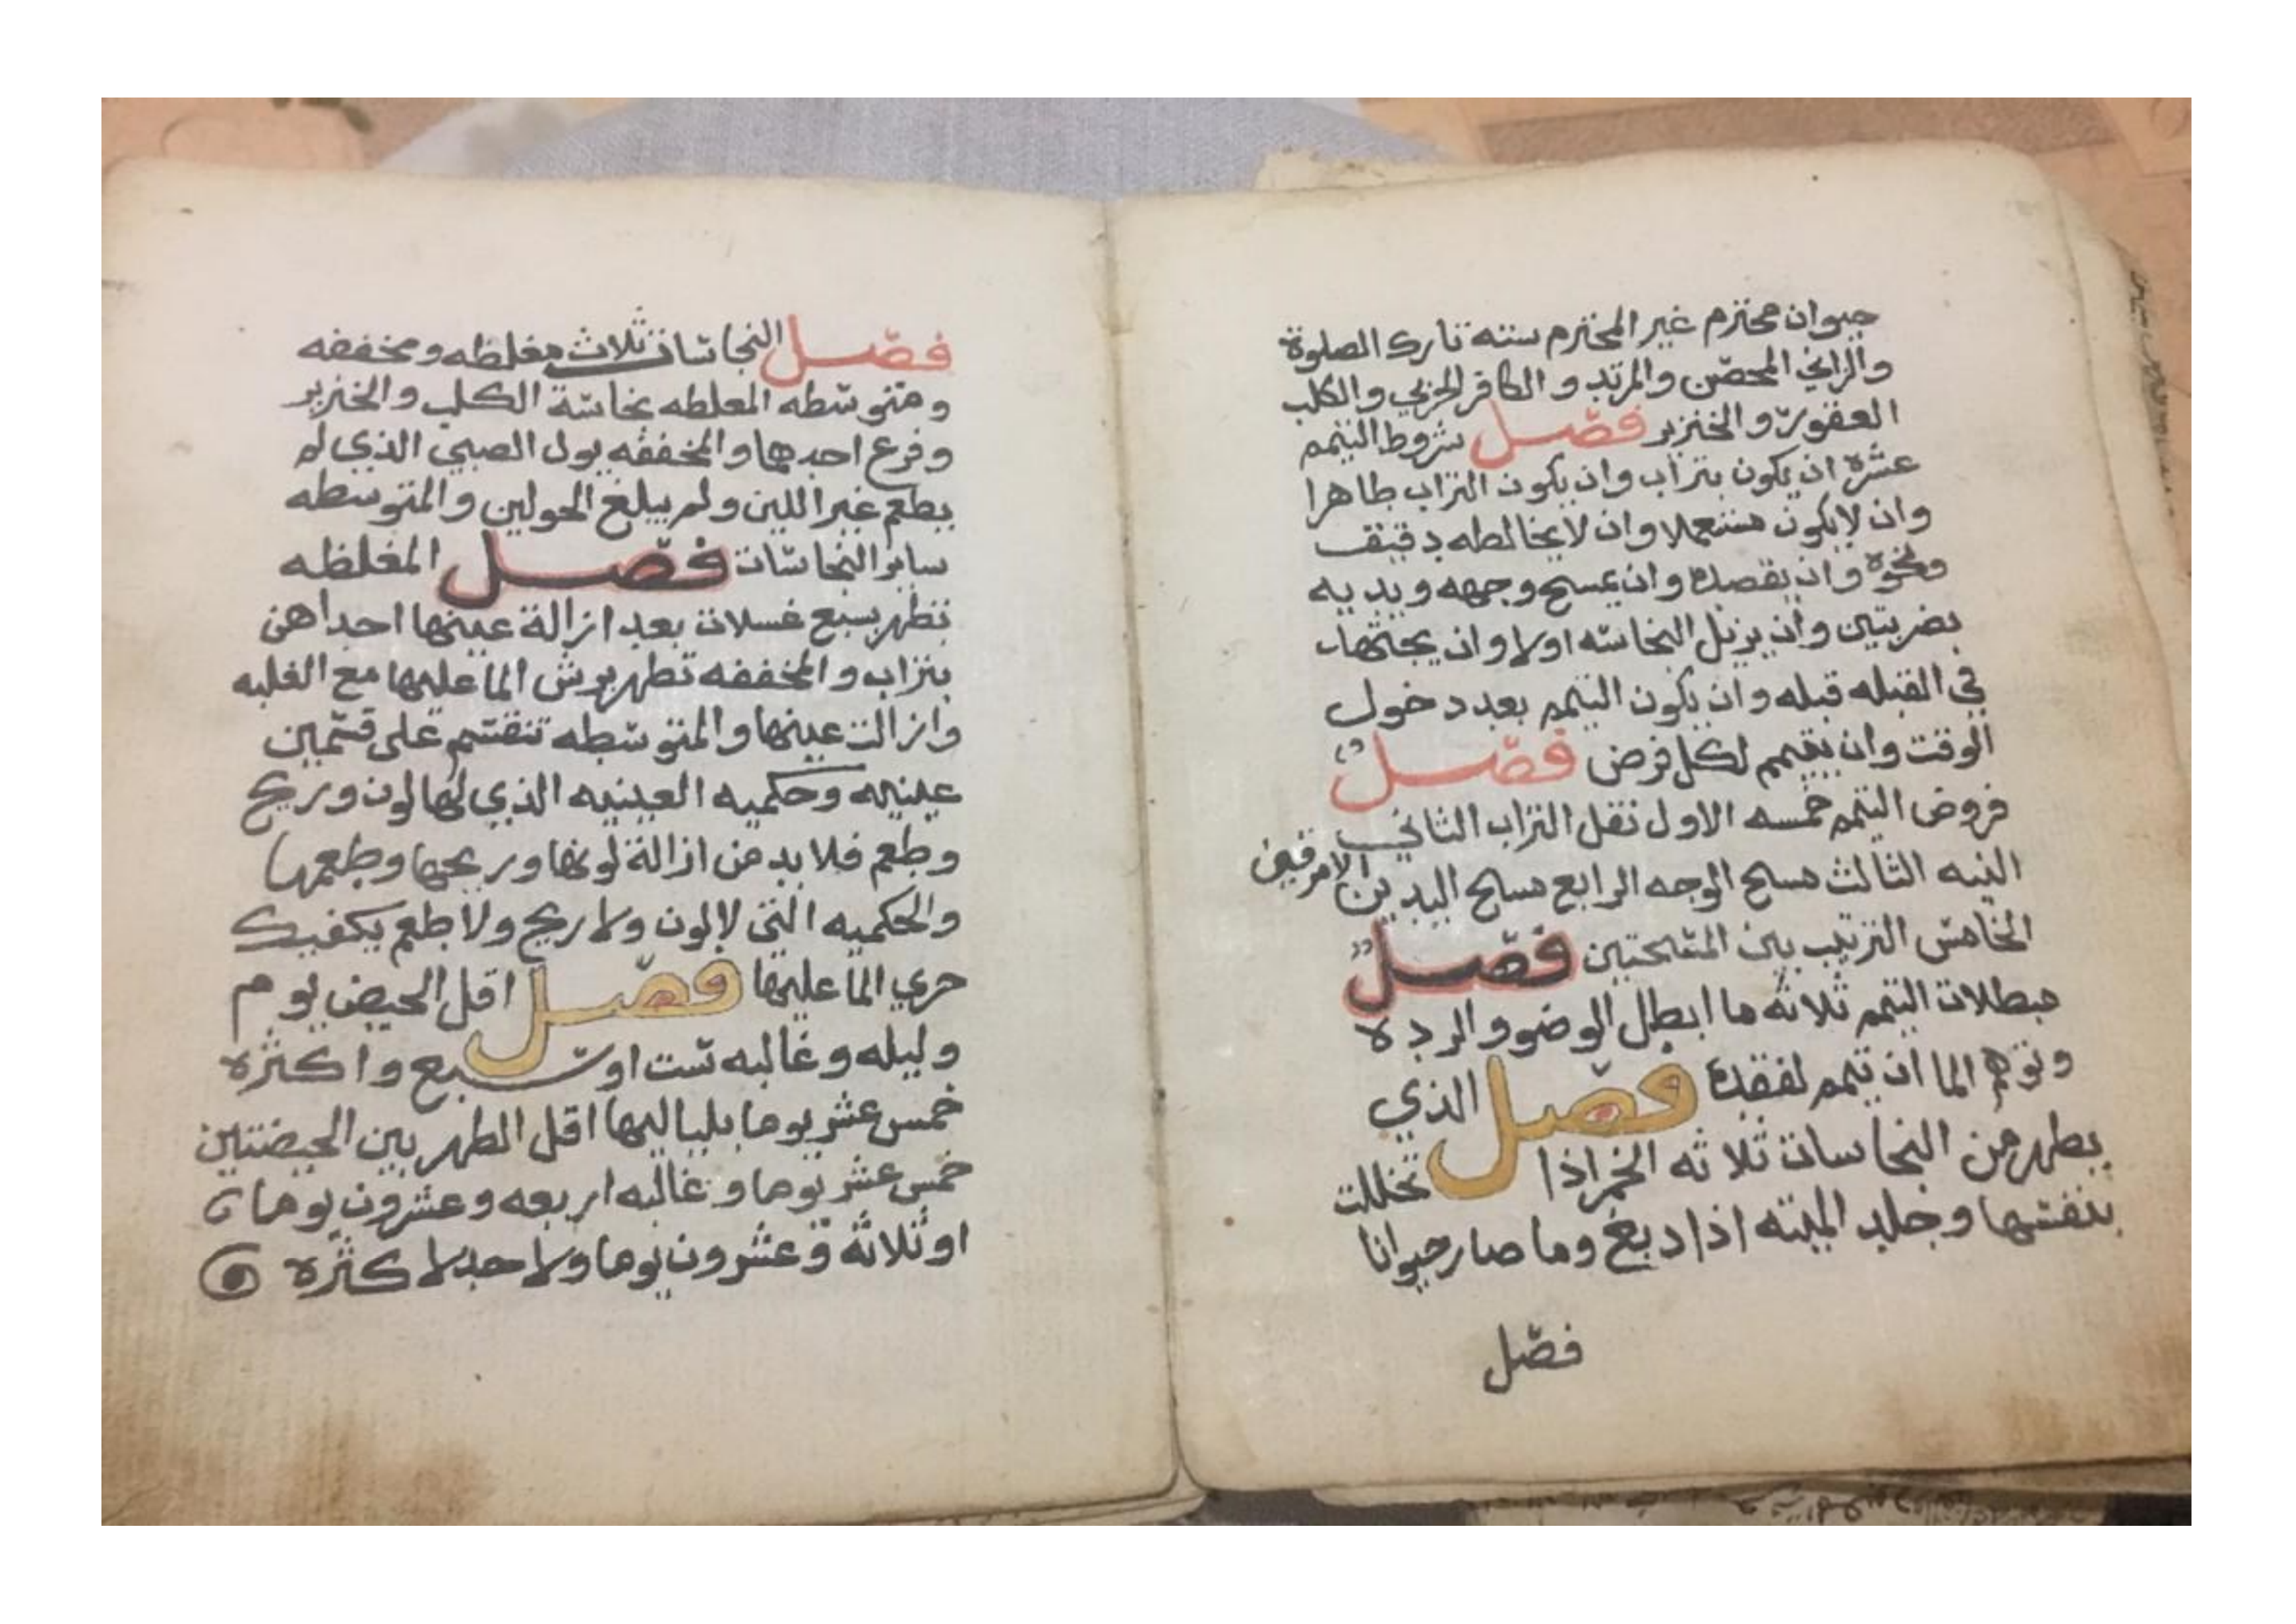 حيوان محترم غير المحترم سته تارك الصلوة
والزاني المحصن والمرتد والكافر الحربي والكلب
العقور والخنزير فصل شروط التيمم
عشرة ان يكون بتراب وان يكون التراب طاهرا
وان لايكون مستعملا وان لايخالطه دقيق
ونحوه وان يقصده وان يمسح وجهه ويديه
بضربتين وان يزيل النجاسه اولا وان يجتهد
في القبله قبله وان يكون التيمم بعد دخول
الوقت وان يتيمم لكل فرض فصل
فروض التيمم خمسه الاول نقل التراب الثاني
النيه الثالث مسح الوجه الرابع مسح اليدين الامرفقين
الخامس الترتيب بين المسحتين فصل
مبطلات التيمم ثلاثه ما ابطل الوضو والرده
وتوهم الما ان تيمم لفقده فصل الذي
يطهر من النجاسات ثلاثه الخمر اذا تخللت
بنفسها وجلد الميته اذا دبغ وما صار حيوانا
فصل
فصل النجاسات ثلاث مغلظه ومخففه
ومتوسطه المغلطه نجاسة الكلب والخنزير
وفرع احدهما والمخففه بول الصبي الذي لم
يطعم غير اللبن ولم يبلغ الحولين والمتوسطه
ساير النجاسات فصل المغلظه
تطهر بسبع غسلات بعد ازالة عينها احداهن
بتراب والمخففه تطهر برش الما عليها مع الغلبه
وازالت عينها والمتوسطه تنقسم على قسمين
عينيه وحكميه العينيه الذي لها لون وريح
وطعم فلا بد من ازالة لونها وريحها وطعمها
والحكميه التي لالون ولا ريح ولا طعم يكفيك
جري الما عليها فصل اقل الحيض يوم
وليله وغالبه ست او سبع واكثره
خمس عشر يوما بلياليها اقل الطهر بين الحيضتين
خمس عشر يوما وغالبه اربعه وعشرون يوما
او ثلاثه وعشرون يوما ولا حد لا كثره